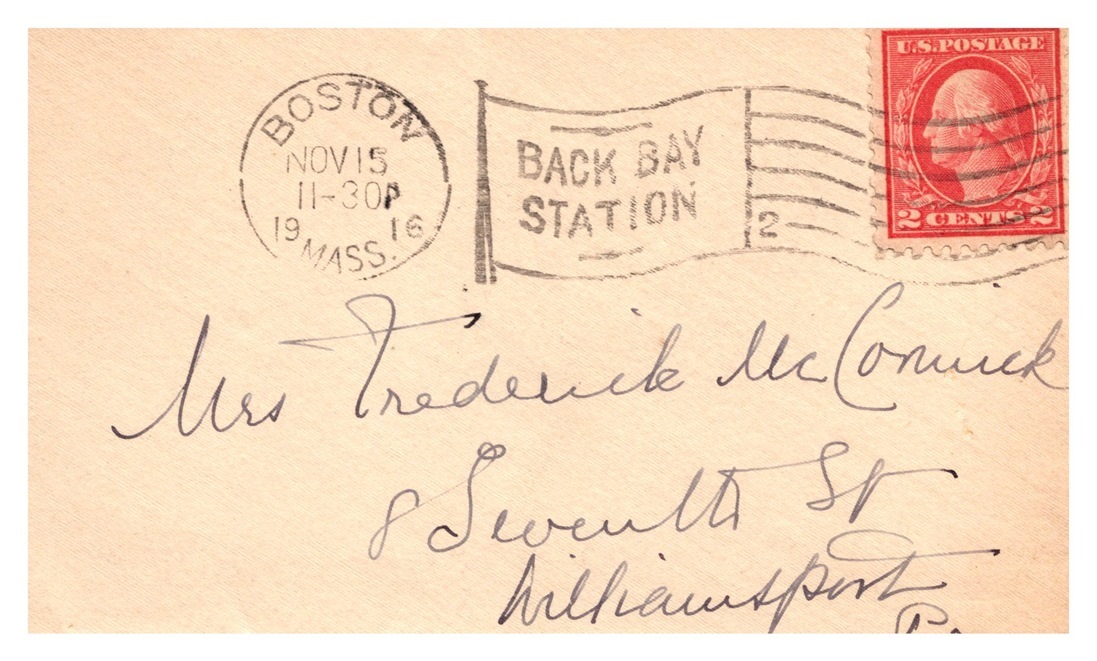 BOSTON
NOV 15
11-30P
1916
MASS.
BACK BAY
STATION
2
U.S. POSTAGE
2 CENTS 2
Mrs Frederick McCormick
8 Seventh St
Williamsport